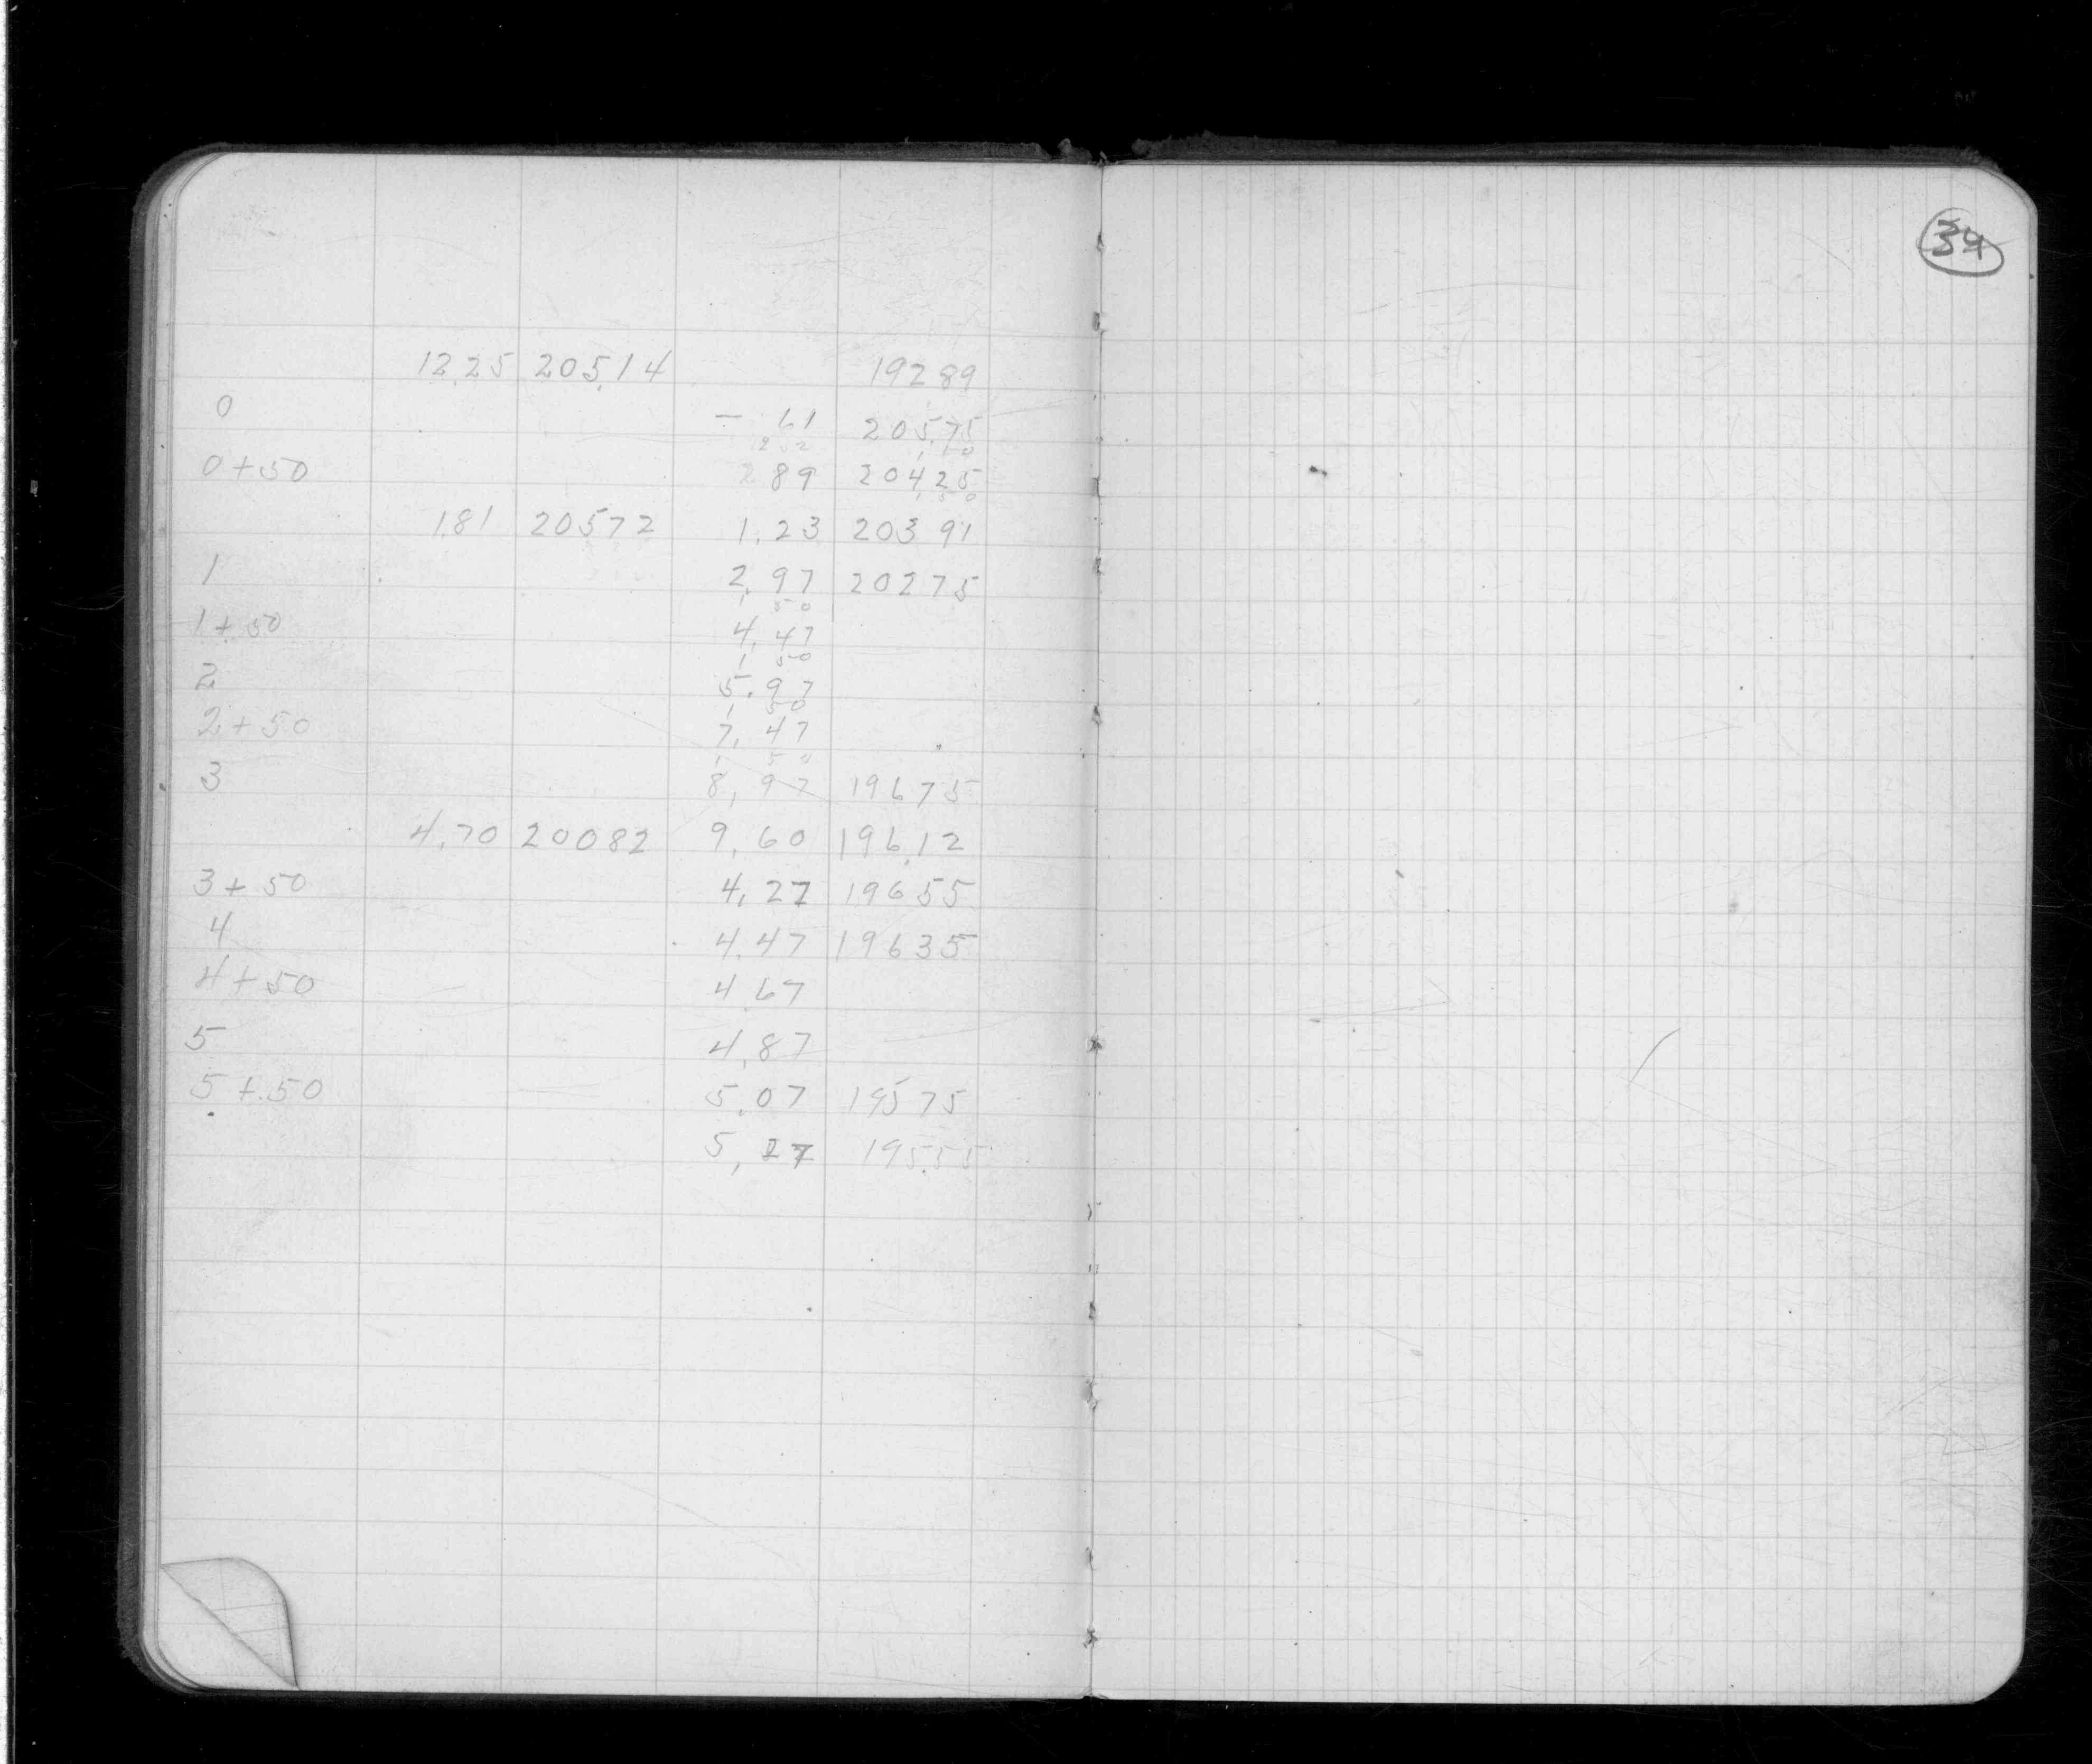 39
12.25 205.14 192 89
0 - 61 205.75
1 50
0+50 89 204.25
1 50
1.81 205 72 1.23 203 91
1 2.97 202 75
1 50
1+50 4.47
1 50
2 5.97
1 50
2+50 7.47
1 50
3 8.97 196 75
4.70 200 82 9.60 196.12
3+50 4.27 196 55
4 4.47 196 35
4+50 4 67
5 4.87
5+50 5.07 195 75
5.27 195.55